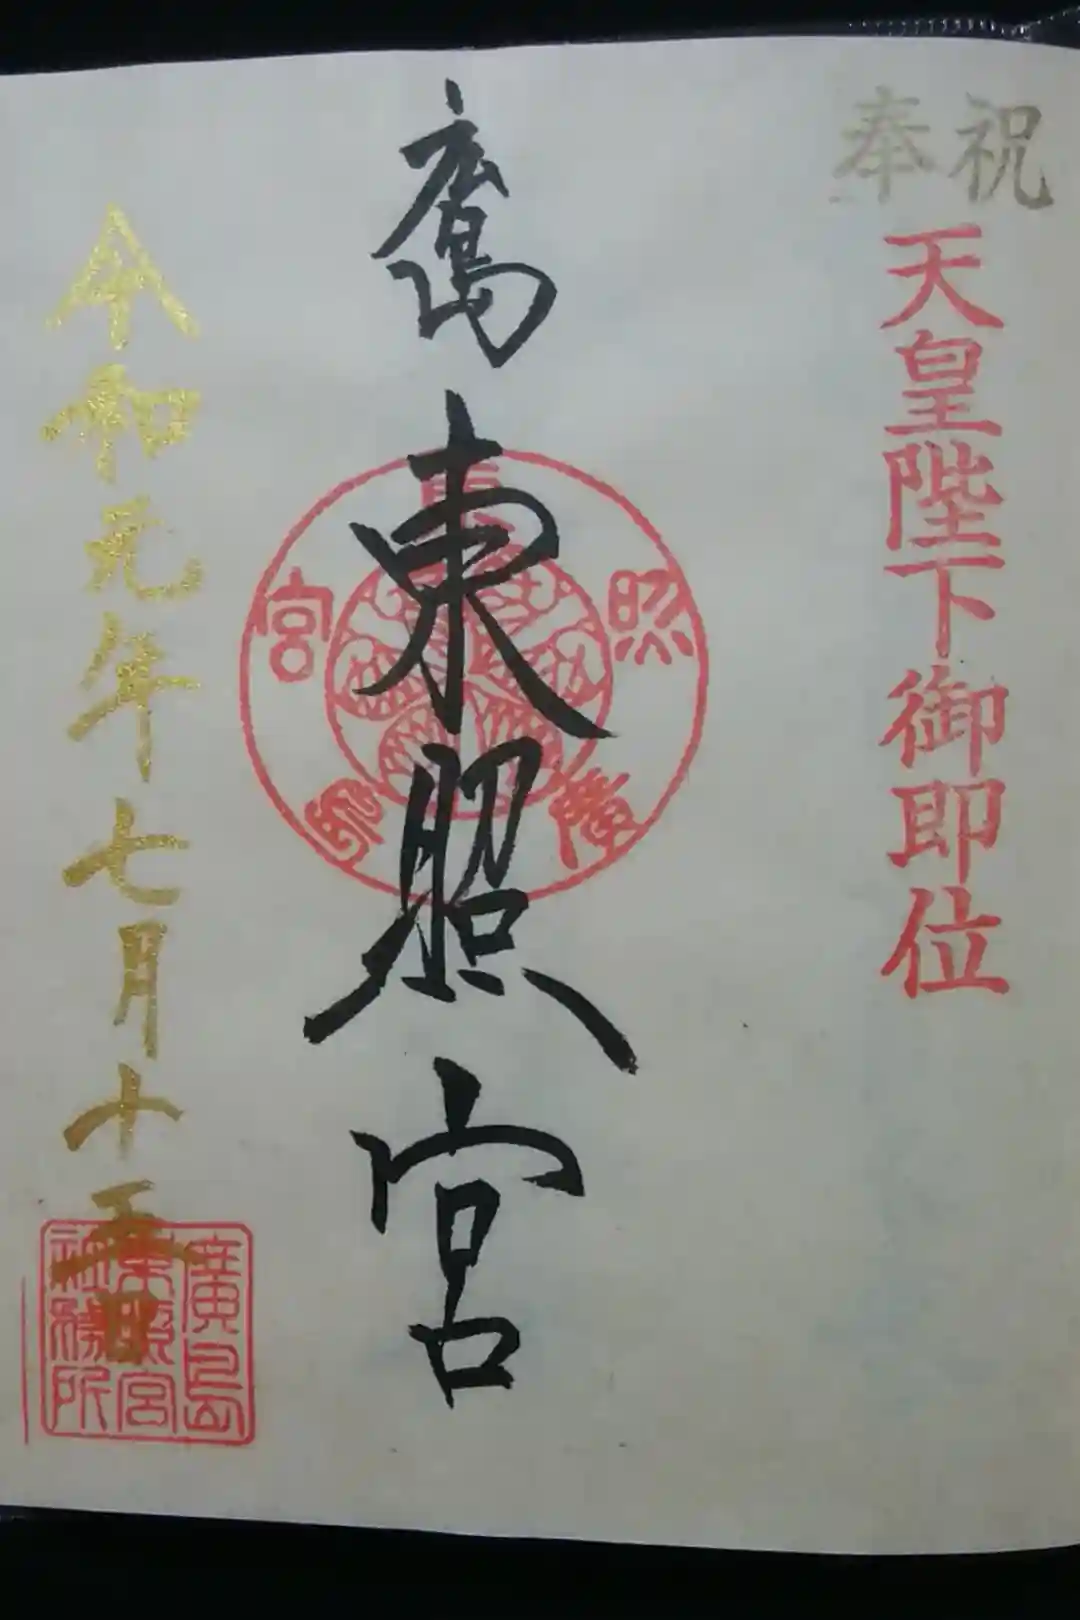 奉祝
天皇陛下御即位
廣島東照宮
廣島東照宮
令和元年七月十五日
廣島
東照宮
社務所